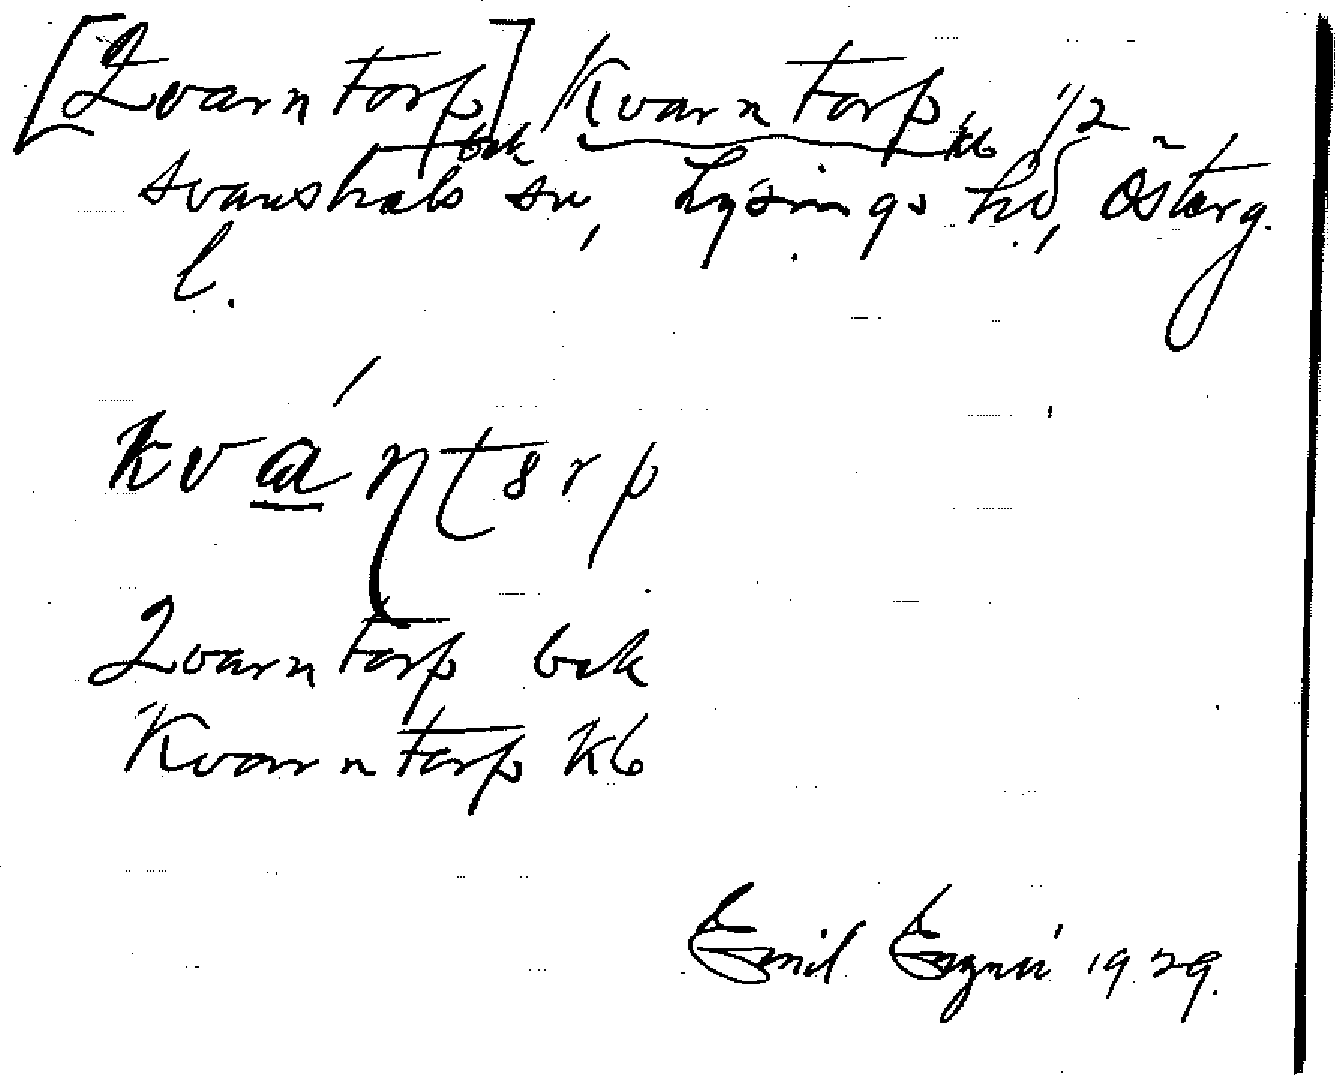 [Qvarntorp] bek Kvarntorp kb 1/2
Svanshals sn, Lysings hd, Österg.
l.
kvańtɵrp
Qvarntorp bek
Kvarntorp kb
Emil 1929.